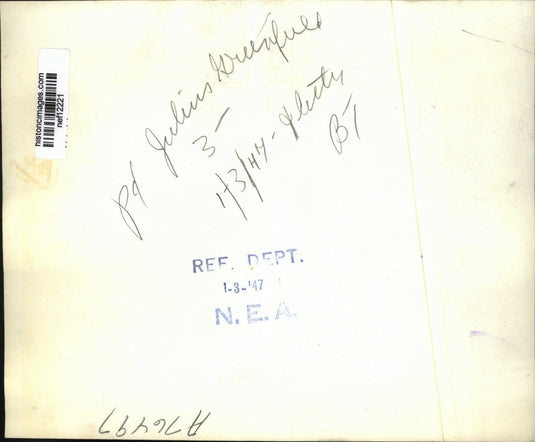 historicimages.com
nef12221
pd Julius Greenfield
3-
1/3/47-
B1
REF. DEPT.
1-3-'47
N.E.A.
A76497